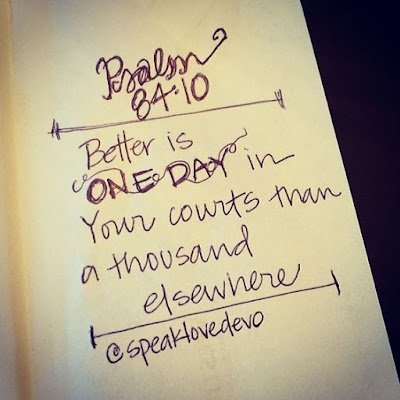 Psalm
84:10
Better is
ONE DAY in
Your courts than
a thousand
elsewhere
@speaklovedevo